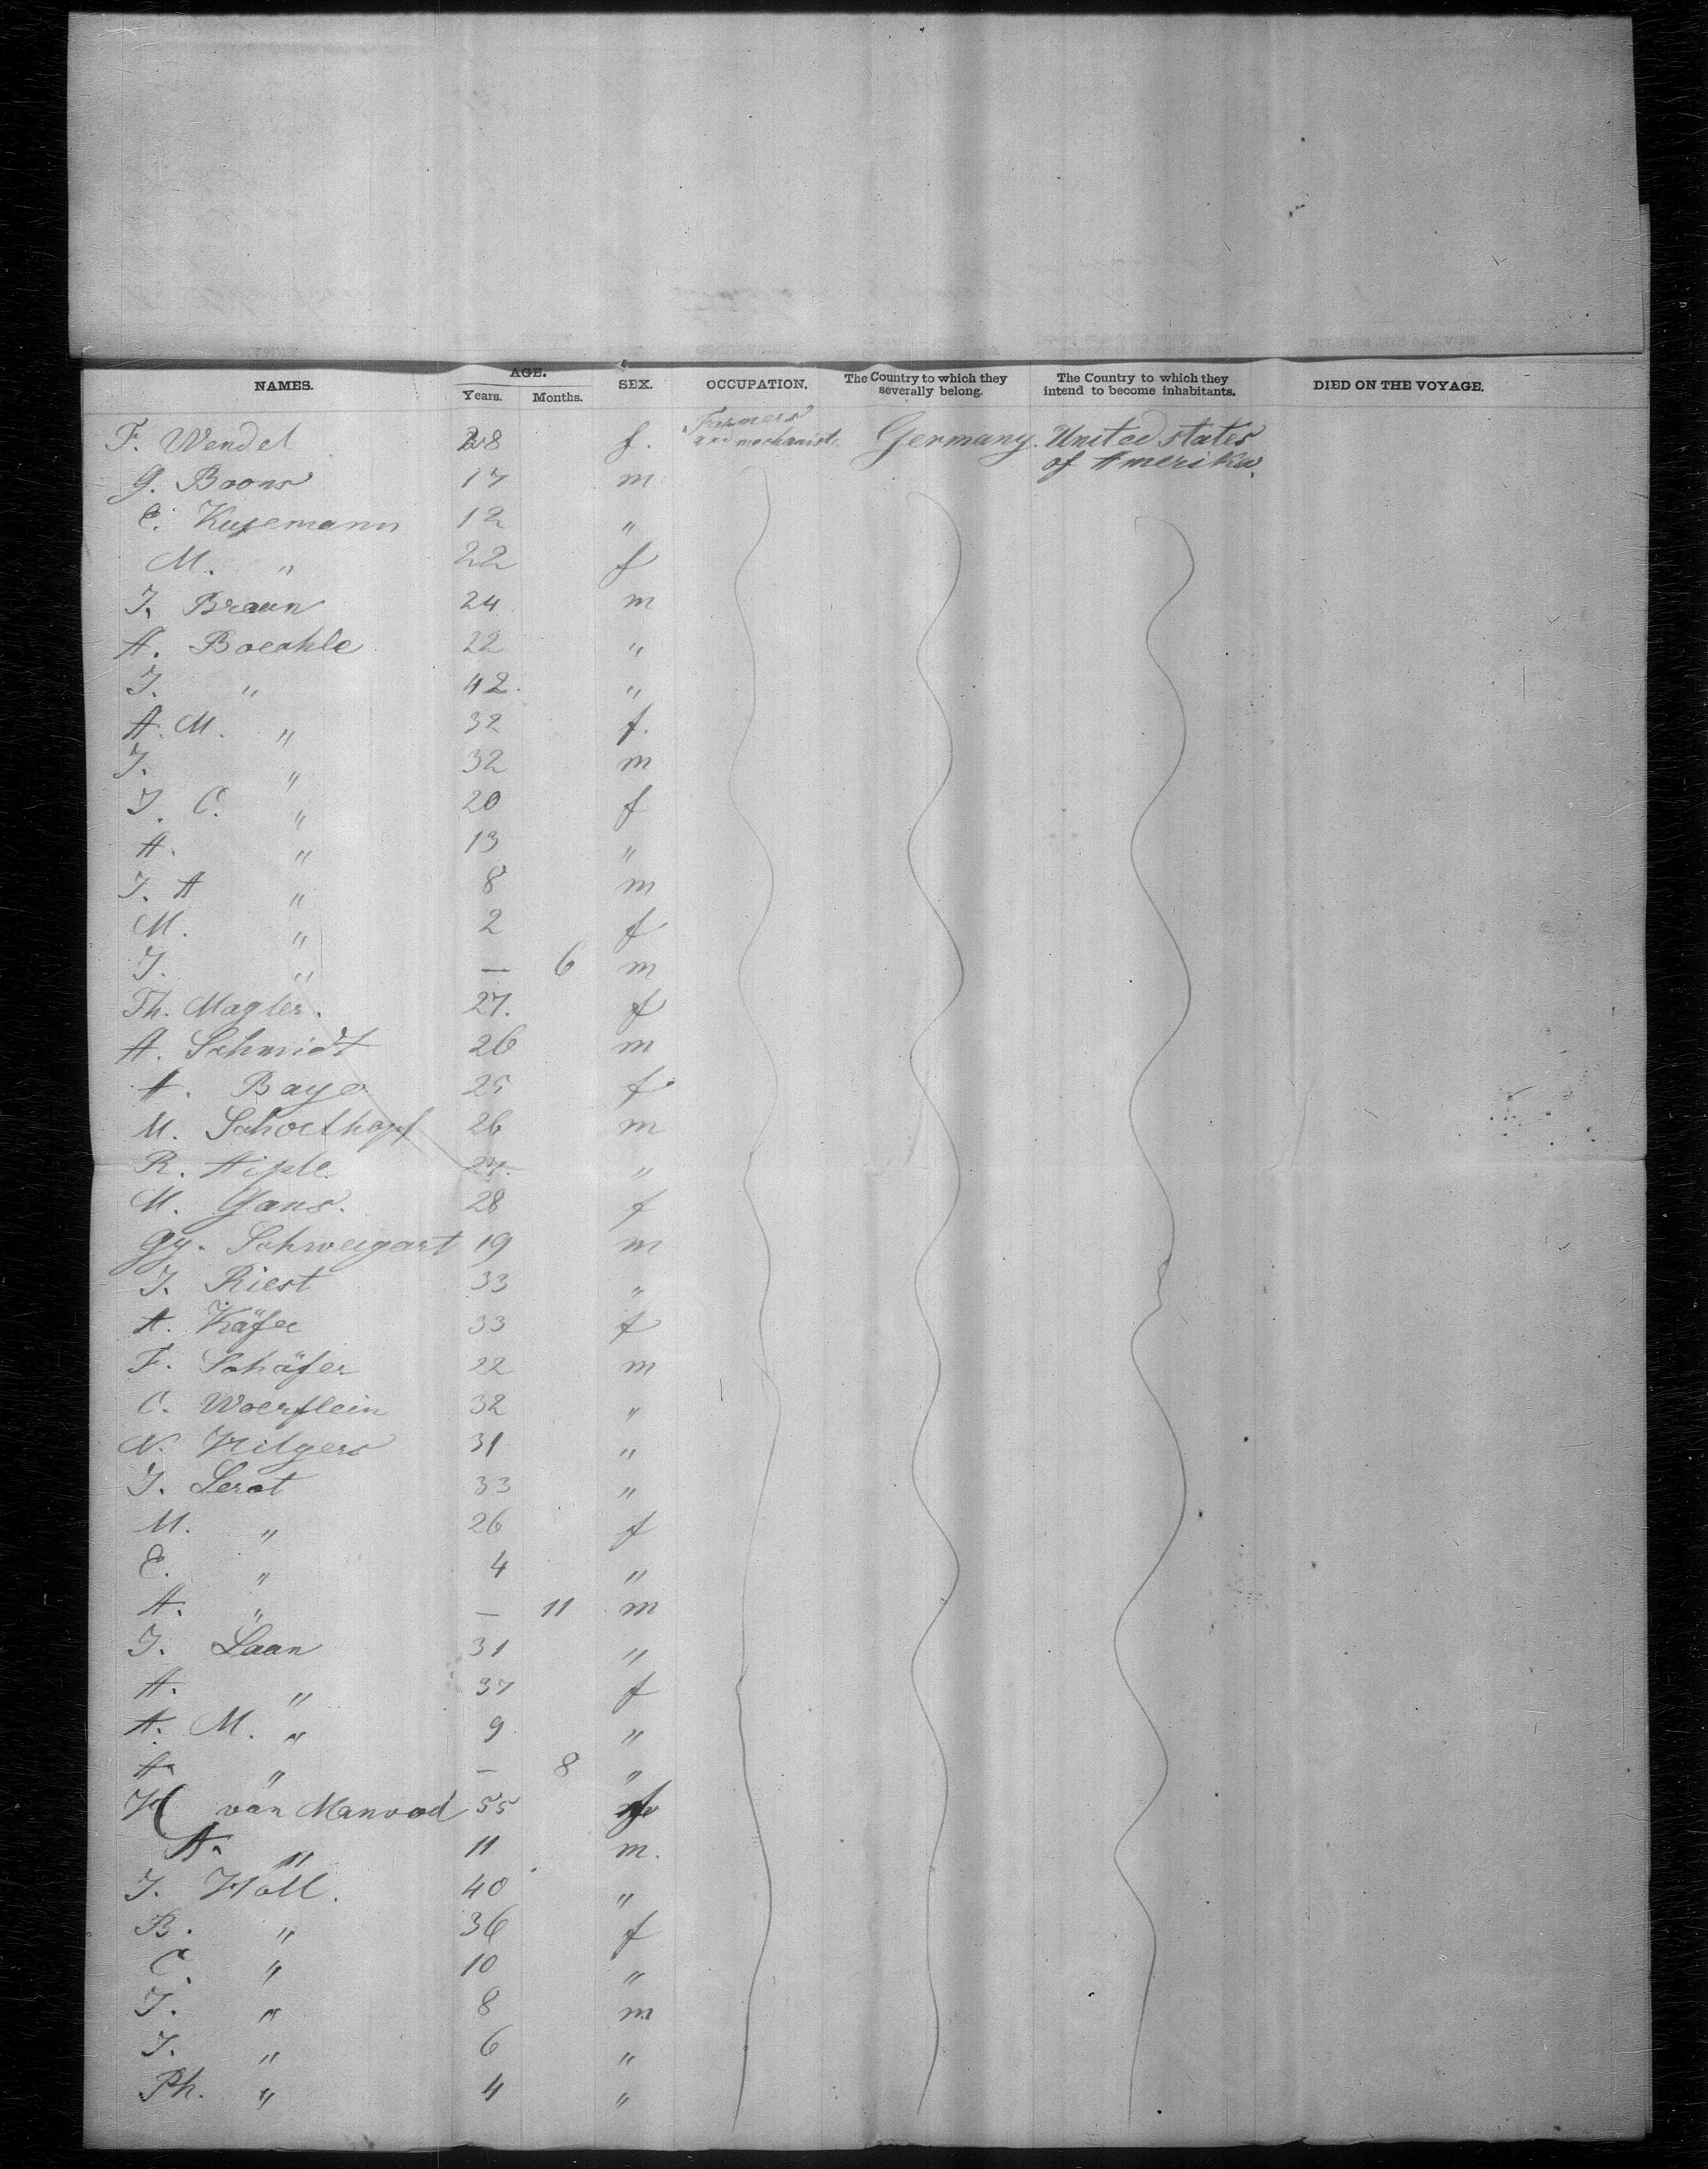 NAMES. AGE. Years. Months. SEX. OCCUPATION. The Country to which they severally belong. The Country to which they intend to become inhabitants. DIED ON THE VOYAGE.
F. Wendel 28 f. Farmers and mechanist. Germany. United states of Amerika.
G. Boons 17 m
C. Kusemann 12 "
M. " 22 f
J. Braun 24 m
A. Boechle 22 "
J. " 42. "
A. M. " 32 f.
J. " 32 m
J. C. " 20 f
A. " 13 "
J. A " 8 m
M. " 2 f
J. " — 6 m
Th. Magler. 27. f
A. Schmidt 26 m
A. Baye 25 f
M. Schoelhopf 26 m
R. Aiple 27. "
M. Gans. 28 f
Gg. Schweigart 19 m
J. Riest 33 "
A. Käfer 33 f
F. Schäfer 22 m
C. Woerflein 32 "
N. Hilgers 31 "
J. Lerot 33 "
M. " 26 f
E. " 4 "
A. " — 11 m
J. Laan 31 "
A. " 37 f
A. M. " 9 "
A. " — 8 "
H van Manvod 55 f
A. " 11 m.
J. Holl. 40 "
B. " 36 f
C. " 10 "
J. " 8 m
J. " 6 "
Ph. " 4 "